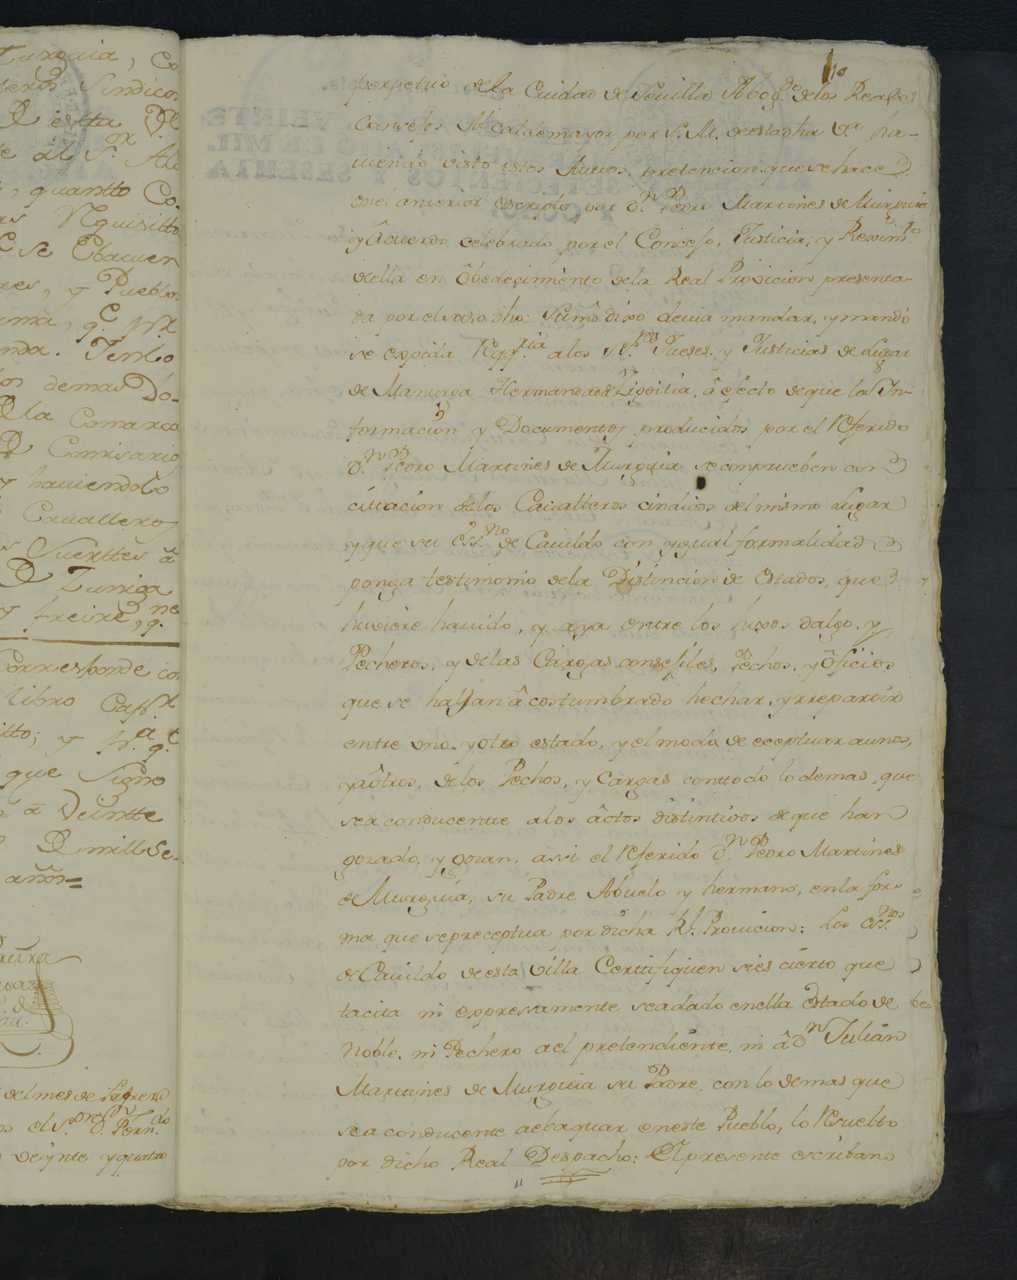 Zuroaia, Co
teros Sindicos
D esta Vª
te al S.ʳ Al
, quantto Co
rs Rquisitto
C se Ebacuen
res, y Pueblo
uma, q.ᵉ
nda. Tenko
los demas Do-
D la Comarca
D Comisario
y haviendolo
Cavalleros
s Suerttes â
D Zuniga
y freire,
Corresponde co
libro Cap.ʳ
itto; y
que Signo
â Veintte
D mill Se-
años=
del mes de
el S.ᵒʳ D.ⁿ Fern.ᵈᵒ
veÿnte y quatro
110
perpetuo de la Ciudad de Sevilla Abog.ᵈᵒ de los Reales
Consejos Alcalde mayor por S. M. de esta dha V.ª ha-
viendo visto estos Autos, pretencion que se hace
en el anterior escripto por D.ⁿ Pedro Martines de Murguia
y Acuerdo celebrado por el Concejo, Justicia, y Rexim.ᵗᵒ
della en ôbedecimiento de la Real Provicion presenta-
da por el suso dho: Sumd dixo devia mandar, y mandó
se expida Reqq.ᵗᵃ a los S.ʳᵉˢ Jueses y Justicias de lugar
de Manurga Hermandad Zigoitia, â efecto de que la In-
formacion y Documentos producidos por el Referido
D.ⁿ Pedro Martines de Murguia se comprueben con
citacion de los Cavalleros cindicos del mismo Lugar
y que su ess.ⁿᵒ de Cavildo con ygual formalidad
ponga testimonio de la Distincion de Estados, que
huviere havido, y aya entre los hijos dalgo, y
Pecheros, y de las Cargas consejiles, Pechos, y ôficios
que se hallan âcostumbrado hechar, y rrepartir
entre uno y otro estado, y el modo de eceptuar a unos,
y âôtros, de los Pechos, y Cargas conttodo lo demas, que
sea conducente a los âctos distintivos de que han
gozado, y gozan, asi el Referido D.ⁿ Pedro Martines
de Murguia, su Padre Abuelo y hermano, en la for-
ma que se preceptua por dicha R.ˡ Provicion: Los ess.ⁿᵒˢ
de Cavildo de esta Villa Certifiquen si es cierto que
tacita ni expresamente se a dado en ella estado de
Noble, ni Pechero a el pretendiente, ni â D.ⁿ Julián
Martines de Murguia su Padre, con lo demas que
sea conducente aebaquar en este Pueblo, lo Resuelto
por dicho Real Despacho: El presente escribano